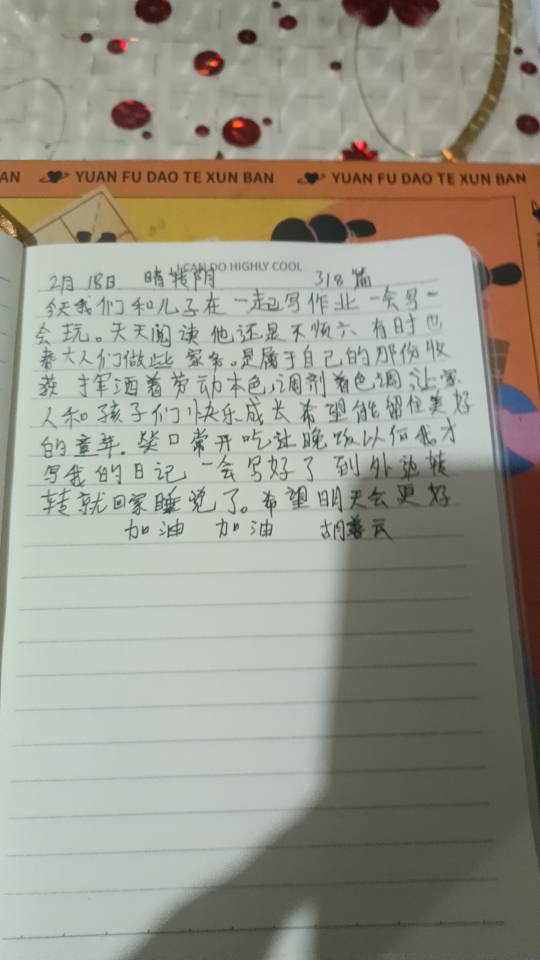 AN YUAN FU DAO TE XUN BAN YUAN FU DAO TE XUN BAN
I CAN DO HIGHLY COOL
2月18日 晴转阴 318篇
今天我们和儿子在一起写作业一会写一
会玩。天天阅读他还是不烦六 有时也
着大人们做些家务。是属于自己的那份收
获 挥洒着劳动本色,调剂着色调让家
人和孩子们快乐成长希望能留住美好
的童年。笑口常开吃过晚饭以后我才
写我的日记一会写好了到外边转
转就回家睡觉了。希望明天会更好
加油 加油 胡善云